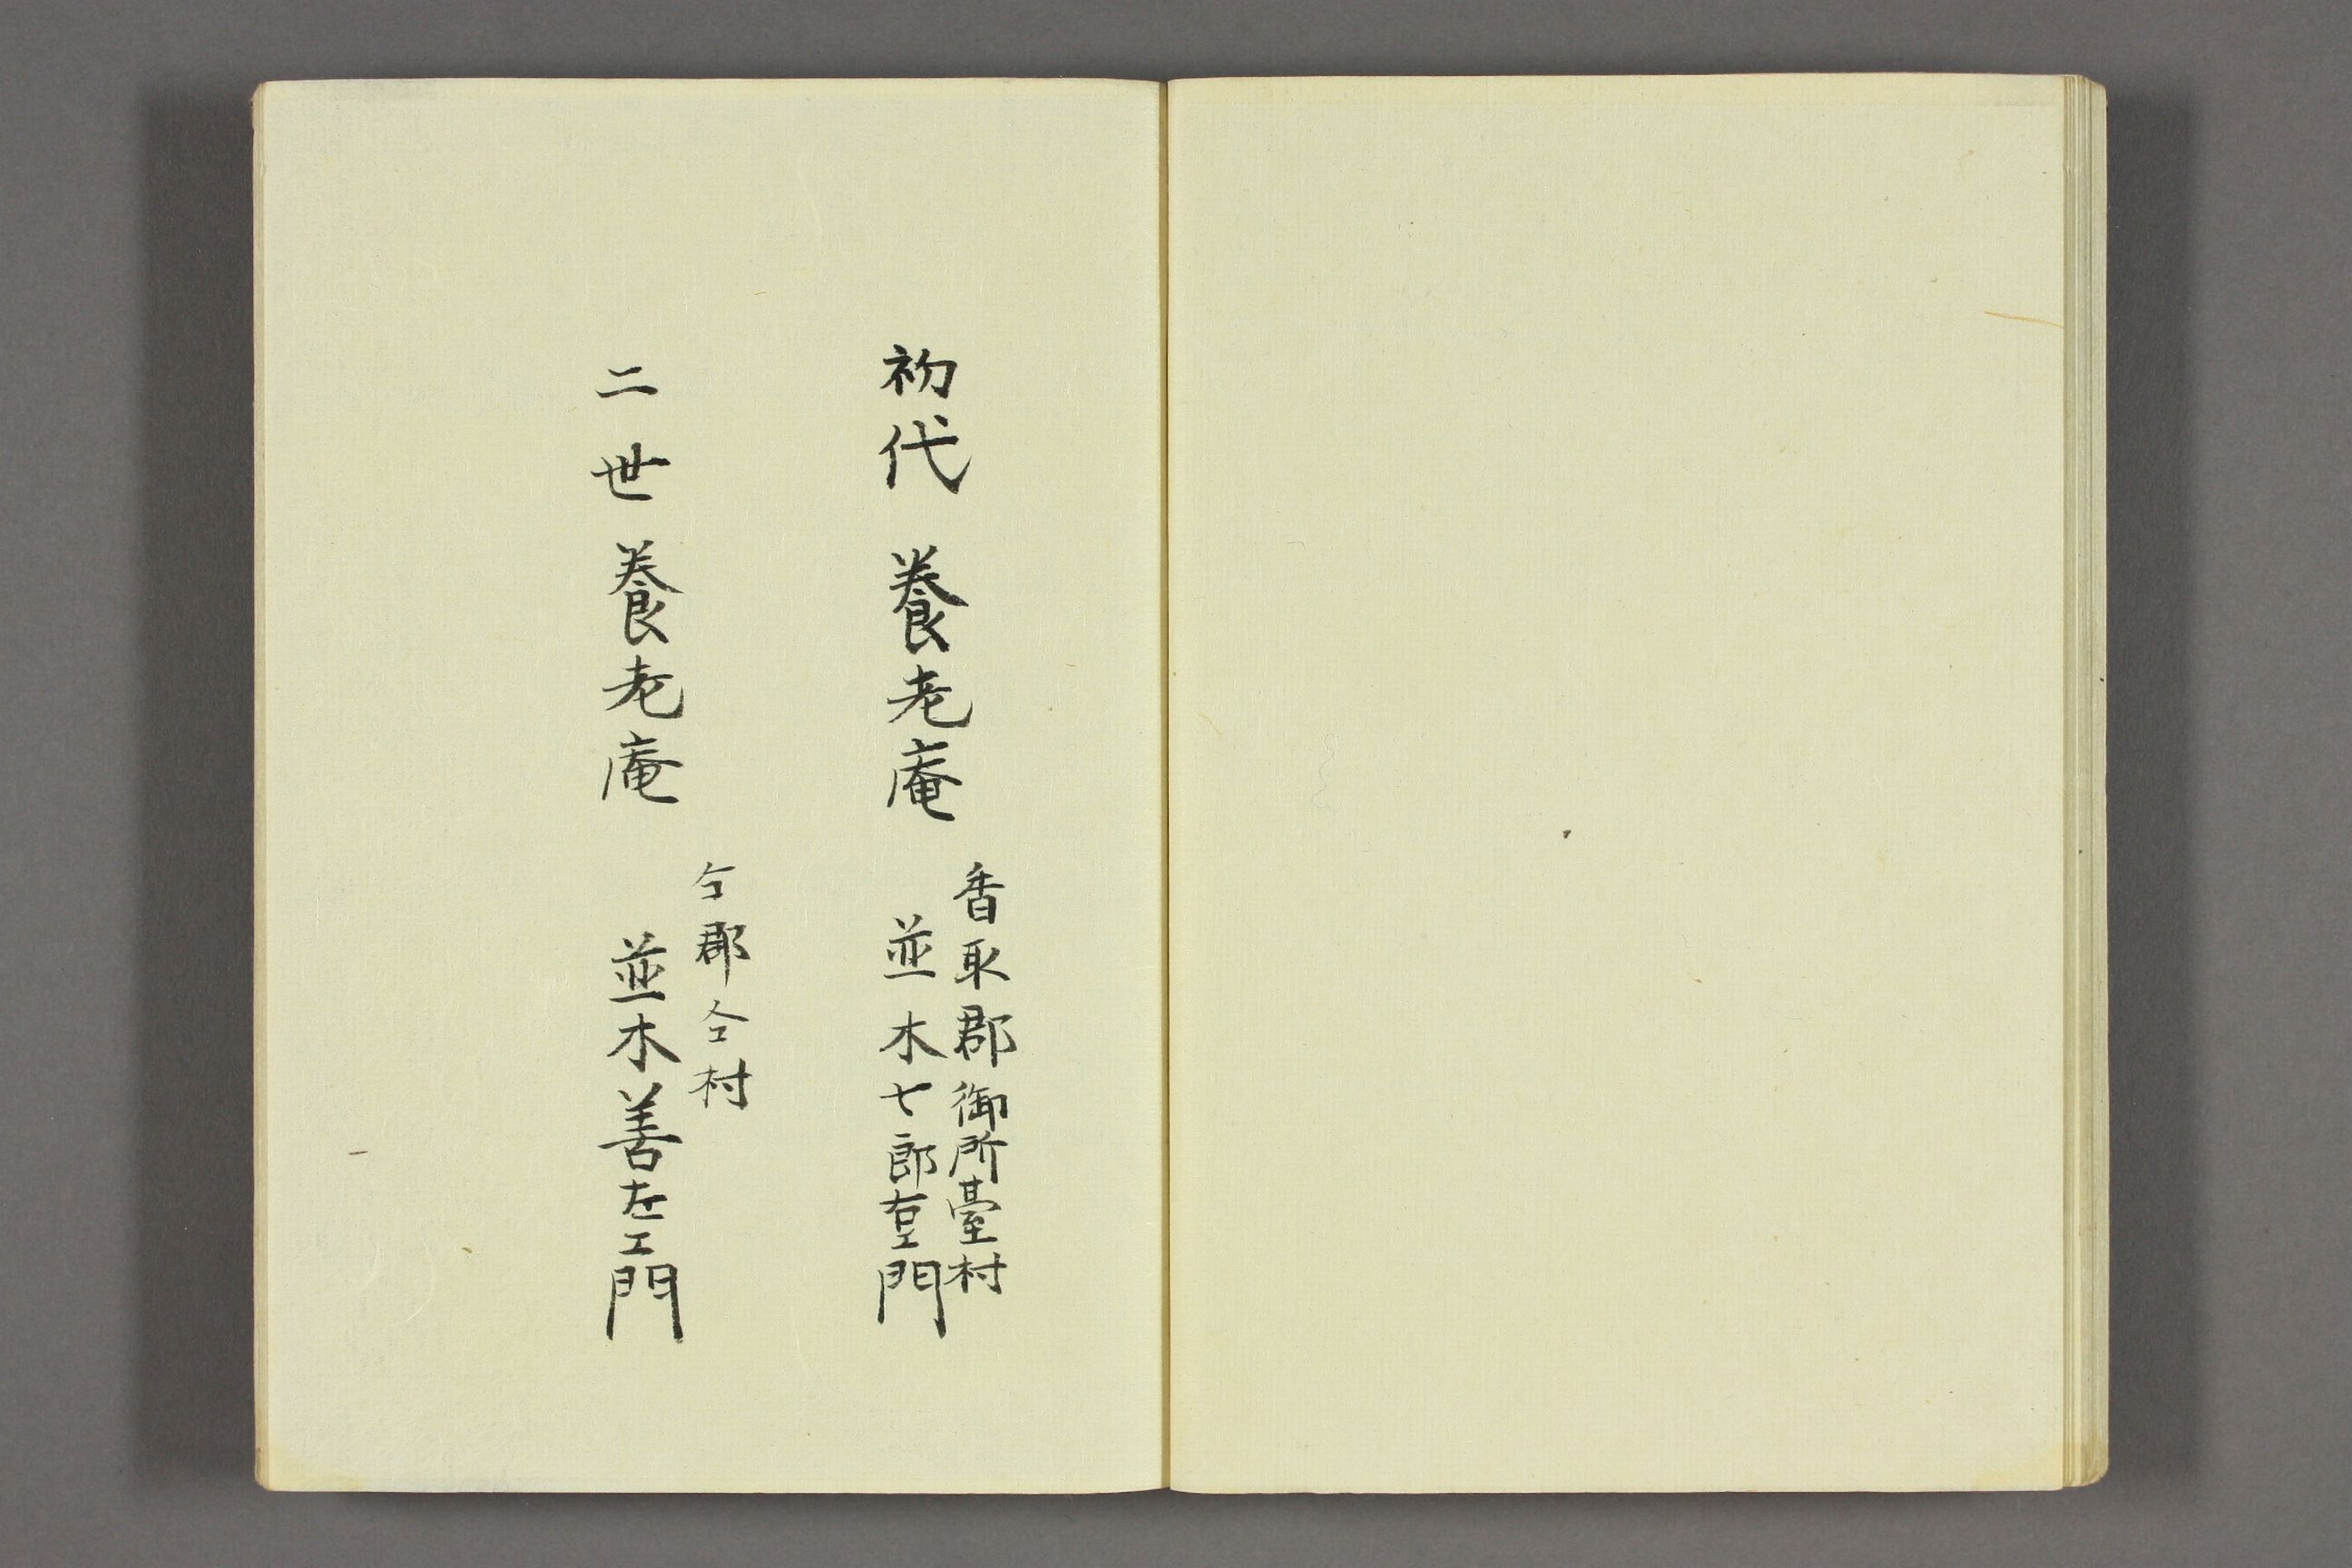 初代 養老庵
香取郡御所臺村
並木七郎右エ門
二世 養老庵
仝郡仝村
並木善左エ門